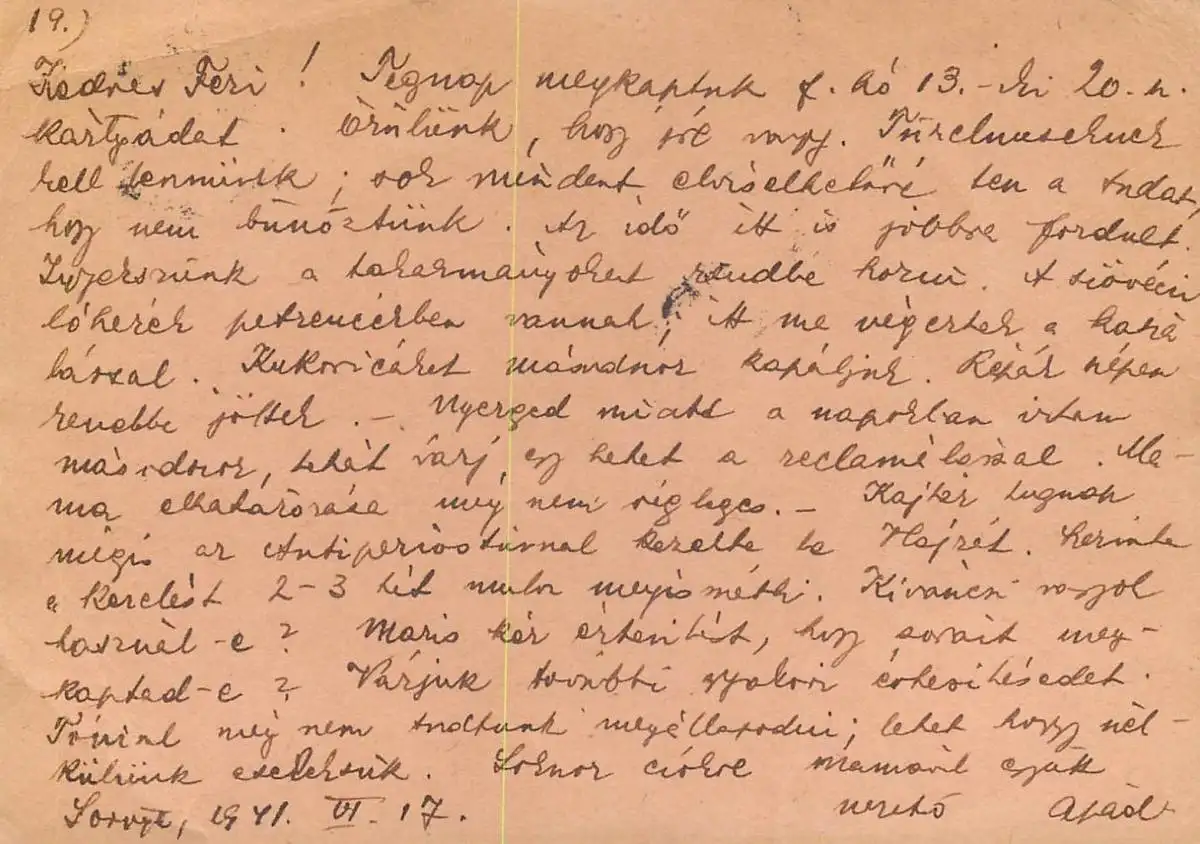 19.)
Kedves Feri! Tegnap megkaptuk f. hó 13.-ki 20. n.
kártyádat. Örülünk, hogy jól vagy. Türelmeseknek
kell lennünk; sok mindent elviselhetővé tesz a tudat,
hogy nem bűnöztünk. Az idő itt is jobbra fordult.
Igyekszünk a takarmányokat rendbe hozni. A
lóherék petrencékben vannak; itt ma végeztek a kaszá-
lással. Kukoricákat másodszor kapáljuk. Répák szépen
rendbe jöttek. - Nyerged miatt a napokban irtam
másodszor, tehát várj egy hetet a reclamálással. Ma-
ma elhatározása még nem végleges. - Kajtár tegnap
mégis az kezelte le Hajrát. Szerinte
a kezelést 2-3 hét mulva megismétli. Kiváncsi vagyok
használ-e? Maris kér értesitést, hogy sorait meg-
kaptad-e? Várjuk további gyakori értesitésedet.
még nem tudtunk megállapodni; lehet hogy nél-
külünk cselekszik. Sokszor csókol Mamával együtt
1941. VI. 17. szerető Apád